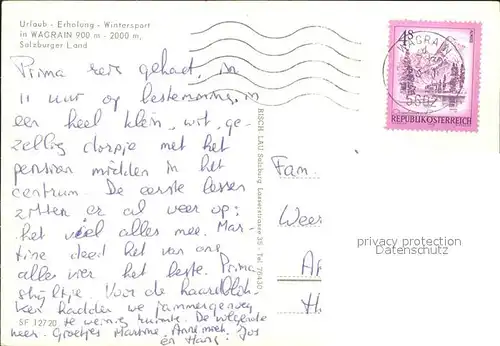 Urlaub - Erholung - Wintersport
in WAGRAIN 900 m - 2000 m,
Salzburger Land
Prima reis gehad, in
11 uur op bestemming, in
een heel klein, wit, ge-
zellig dorpje met het
pension midden in het
centrum. De eerste lessen
zitten er al weer op:
het viel alles mee. Mar-
tine deed het van ons
alle vier het beste. Prima
stijltje. Voor de haardblok-
ken hadden we jammergenoeg
te weinig ruimte. De volgende
keer. Groetjes Martine, Annemiek, Jos
en Hans.
SF 12720
RISCH LAU Salzburg Lasserstrasse 35 - Tel. 76430
4S
WAGRAIN
5602
REPUBLIK ÖSTERREICH
Fam.
Weer
privacy protection
Datenschutz